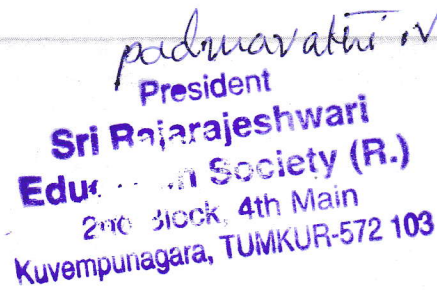 padmavathi .N
President
Sri Rajarajeshwari
Society (R.)
2nd Block, 4th Main
Kuvempunagara, TUMKUR-572 103